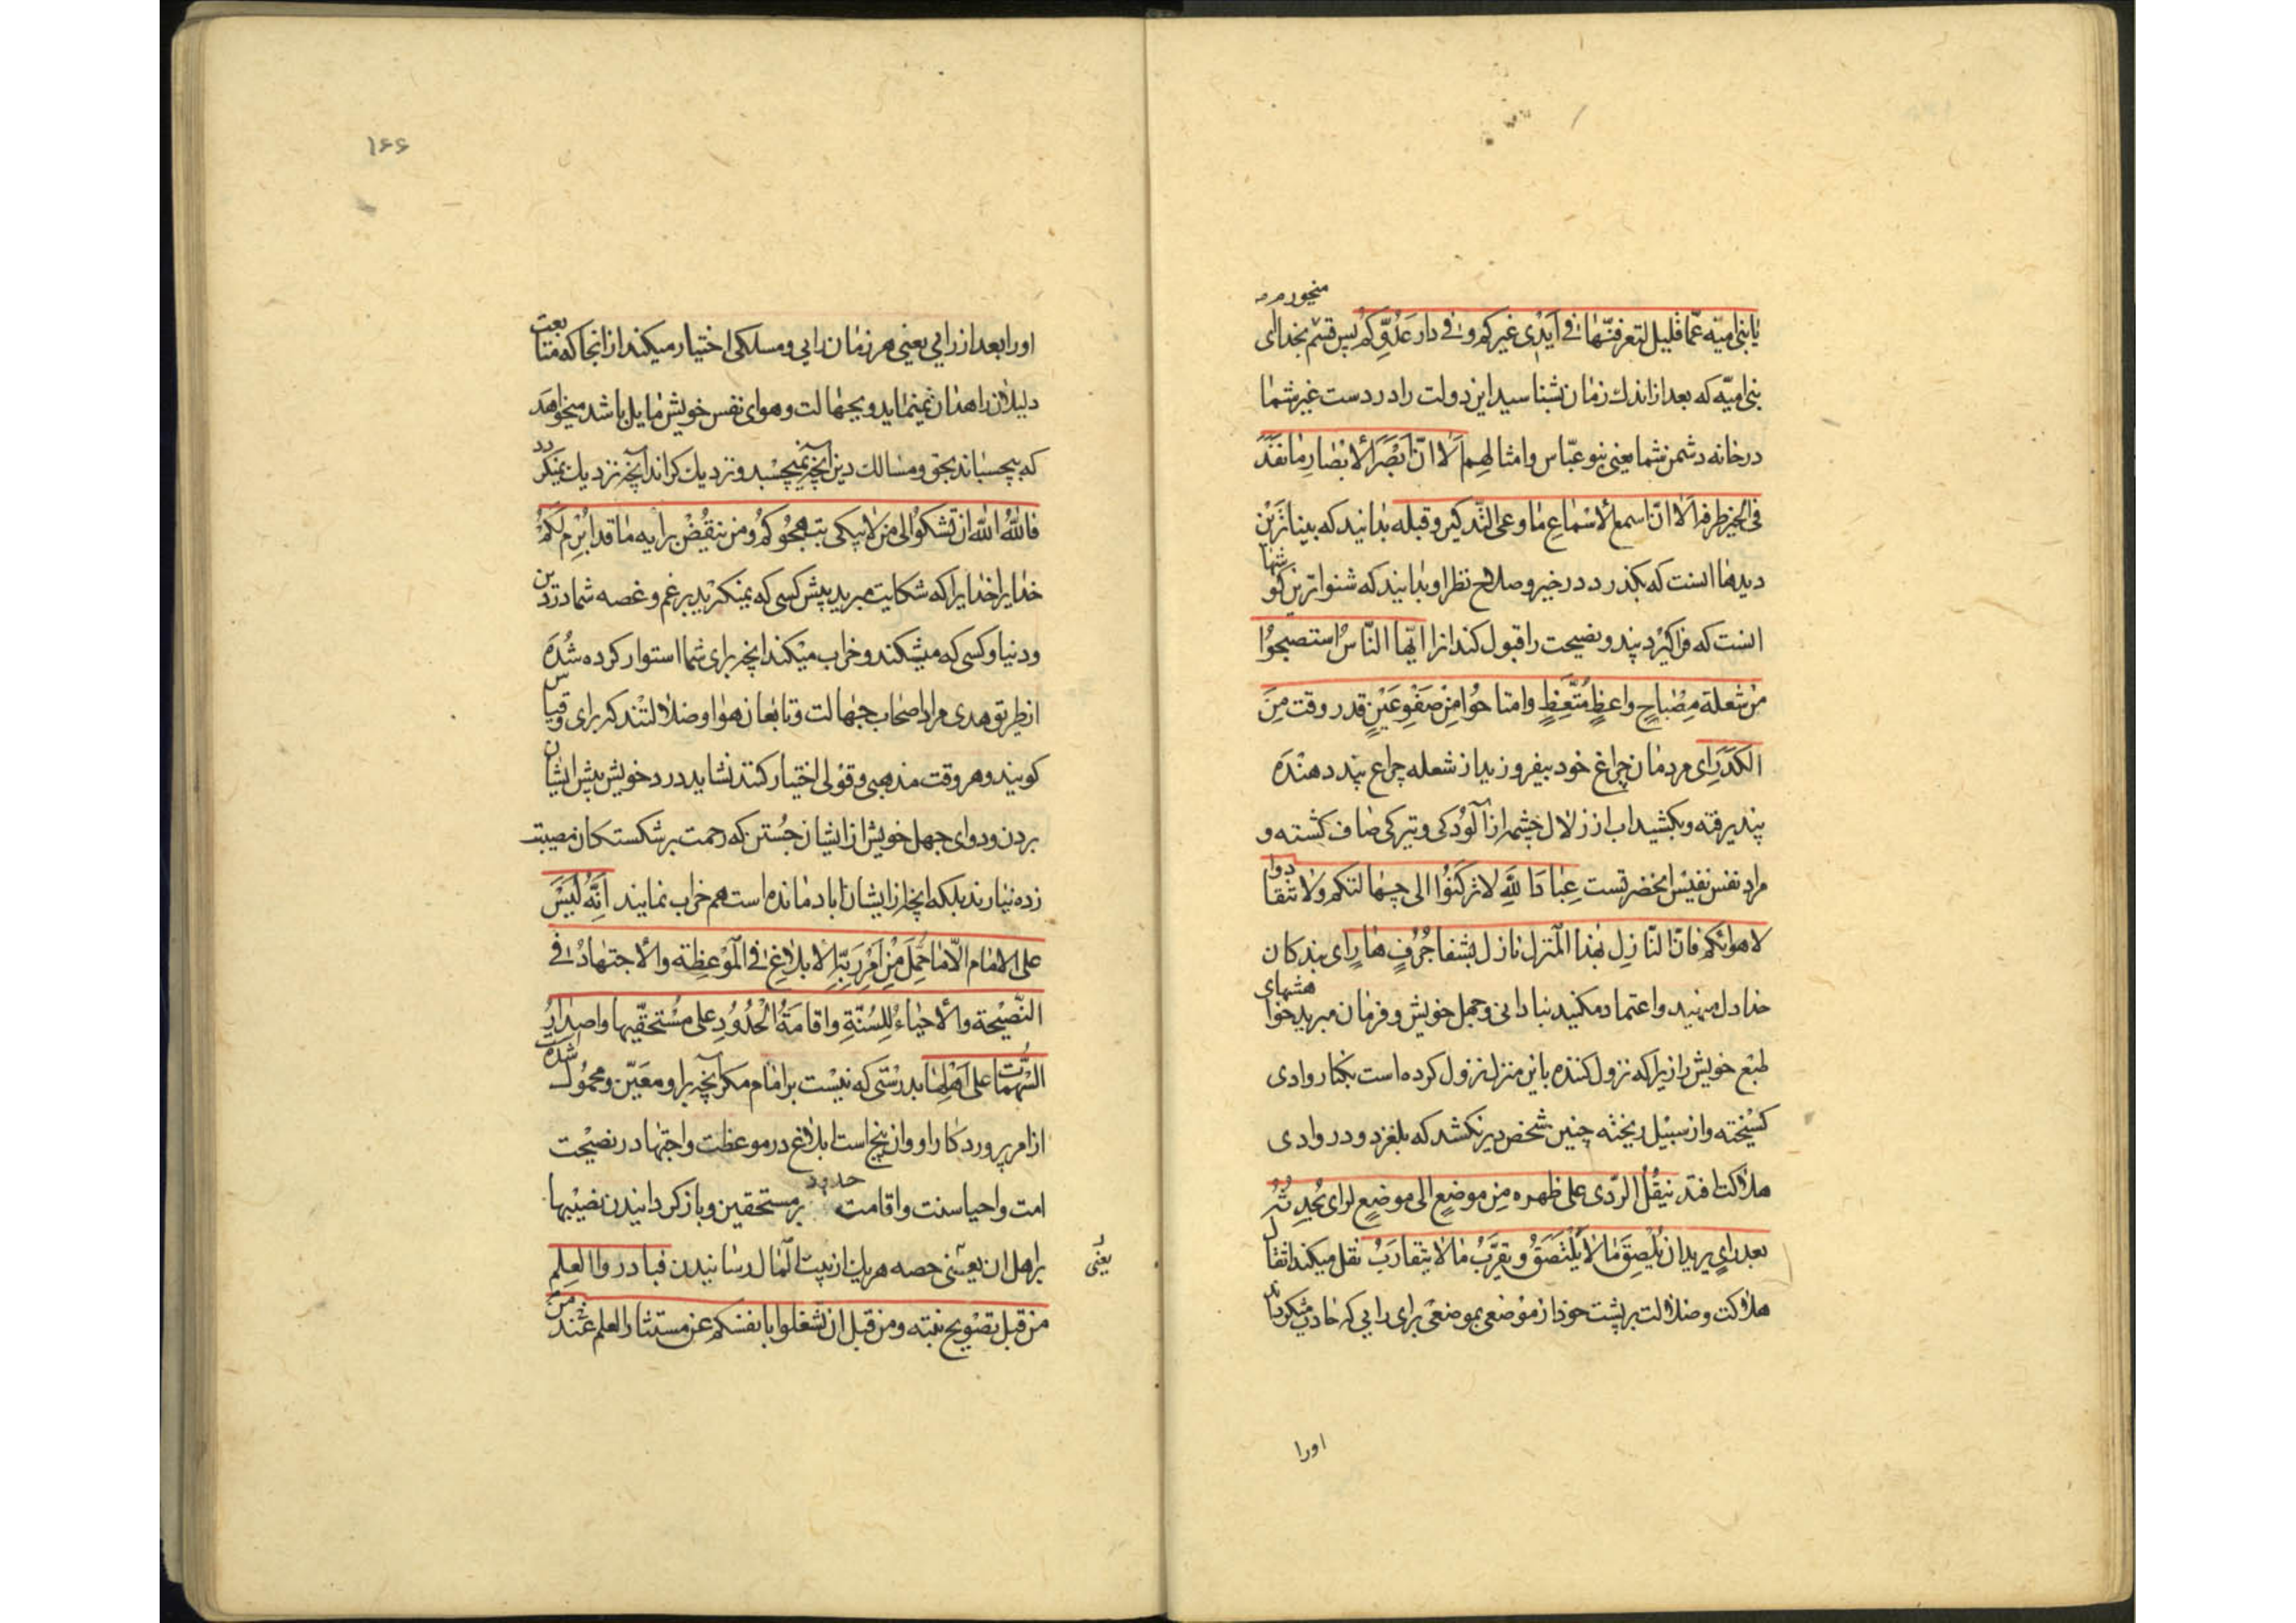 منخورم
یا بنی امیّه عمّا قلیل لتعرفنّها فی ایدی غیرکم و فی دار عدوّکم پس قسم بخدا ای
بنی امیّه که بعد از اندك زمان بشناسید این دولت را در دست غیر شما
در خانه دشمن شما یعنی بنو عبّاس و امثالهم الا انّ ابصر الابصار ما نفذ
فی الخیر طرفه الا انّ اسمع الاسماع ما وعی التّذکیر و قبله بدانید که بیناترین
دیدها انست که بکذرد در خیر و صلاح نظر او بدانید که شنواترین کوشها
انست که فراکیرد پند و نصیحت را و قبول کند انرا ایّها النّاس استصبحوا
من شعلة مصباح واعظٍ متّعظٍ و امتاحوا من صفو عینٍ قد روقت من
الکدر ای مردمان چراغ خود بیفروزید از شعله چراغ پند دهنده
پند یرفته و بکشید اب از زلال چشمه از آلودکی و تیرکی صاف کشته و
مراد نفس نفیس انحضرتست عباد الله لا ترکنوا الی جهالتکم و لا تنقادوا
لاهوائکم فانّ النّازل بهذا المنزل نازل بشفا جرفٍ هارٍ ای بندکان
خدا دل منهید و اعتماد مکنید بنادانی و جهل خویش و فرمان مبرید خواهشهای
طبع خویش را زیرا که نزول کننده باین منزل نزول کرده است بکنار وادی
کسیخته و از سبیل ریخته چنین شخص دیر نکشد که بلغزد و در وادی
هلاکت افتد ینقل الرّدی علی ظهره من موضعٍ الی موضعٍ لرای یحدثه
بعد رایٍ یرید ان یلصق ما لا یلتصق و یقرّب ما لا یتقارب نقل میکند اثقال
هلاکت و ضلالت بر پشت خود از موضعی بموضعی برای رایی که حادث میکرداند
اورا
۱۶۶
اورا بعد از رایی یعنی هر زمان رایی و مسلکی اختیار میکند از انجا که متابعت
دلیلان راهدان نمینماید و بجهالت و هوای نفس خویش مایل باشد میخواهد
که بچسباند بحق و مسالك دین آنچه نمیچسبد و نزدیك کراند آنچه نزدیك نمیکردد
فالله الله ان تشکوا الی من لا یبکی شجوکم و من ینقض برایه ما قد ابرم لکم
خدا یرا خدا یرا که شکایت مبرید پیش کسی که نمیکرید بر غم و غصه شما در دین
و دنیا و کسی که میشکند و خراب میکند انچه برای شما استوار کرده شده
از طریق هدی مراد اصحاب جهالت و تابعان هوا و ضلالتند که برای و قیاس
کویند و هر وقت مذهبی و قولی اختیار کنند نشاید درد خویش پیش ایشان
بردن و دوای جهل خویش از ایشان جستن که رحمت بر شکستکان مصیبت
زده نیارند بلکه انچه از ایشان اباد مانده است هم خراب نمایند انّه لیس
علی الامام الّا ما حمّل من امر ربّه الابلاغ فی الموعظة و الاجتهاد فی
النّصیحة و الاحیاء للسّنّة و اقامة الحدود علی مستحقّیها و اصدار
السّهمات علی اهلها بدرستی که نیست بر امام مکر آنچه بر او معیّن و محمول شده
از امر پروردکار او و ان پنج است ابلاغ در موعظت و اجتهاد در نصیحت
امت و احیا سنت و اقامت حدود بر مستحقین و باز کردانیدن نصیبها
بر اهل ان یعنی حصه هر یك از بیت المال رسانیدن فبادروا العلم
یعنی
من قبل تصویح نبته و من قبل ان تشغلوا بانفسکم عن مستثار العلم من عند